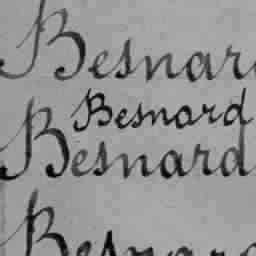 Besnard
Besnard
Besnard
Besnard